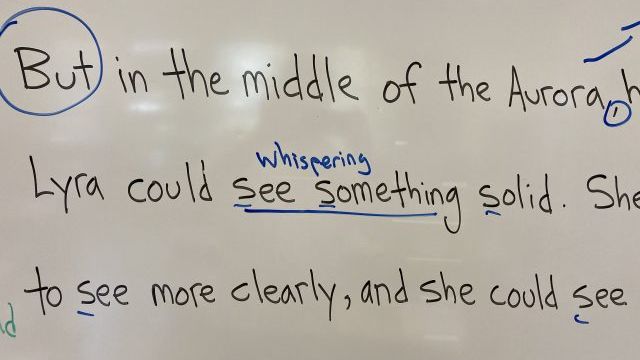 But in the middle of the Aurora,
whispering
Lyra could see something solid. She
to see more clearly, and she could see